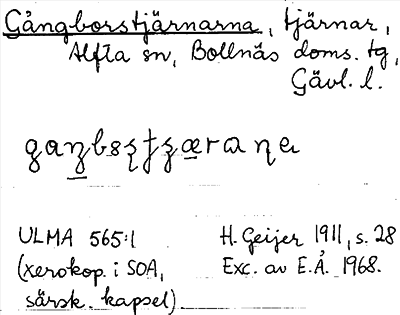 Gångborstjärnarna, tjärnar,
Alfta sn, Bollnäs doms. tg,
Gävl. l.
ULMA 565:1
(xerokop. i SOA,
särsk. kapsel)
H. Geijer 1911, s. 28
Exc. av E.Å. 1968.